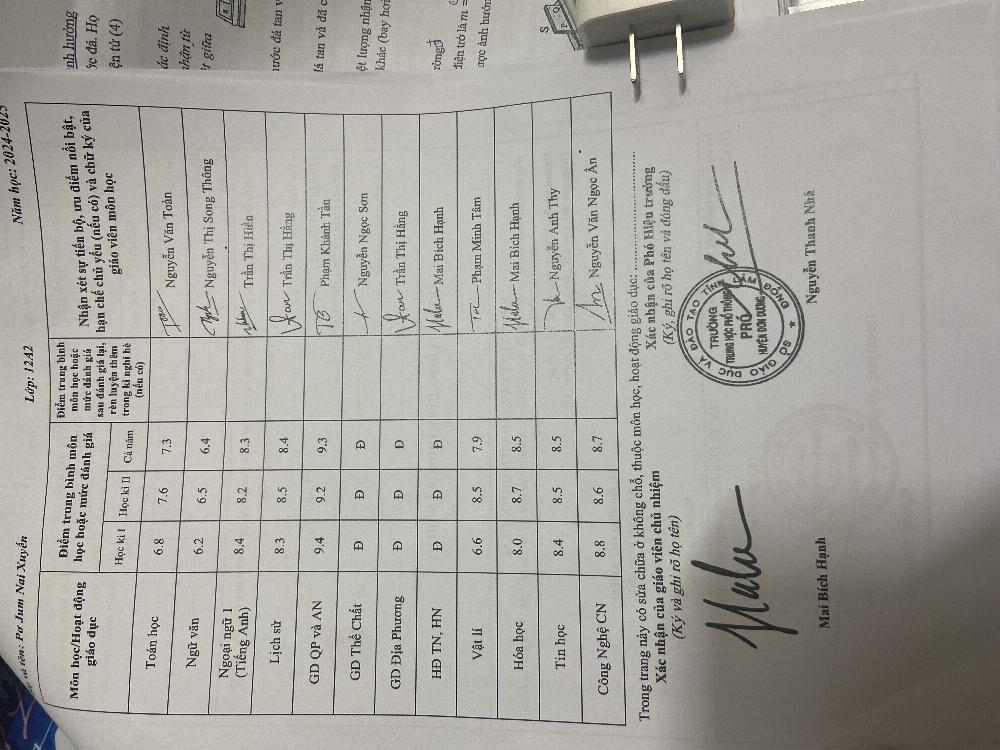 Họ và tên: Pơ Jum Nai Xuyến Lớp: 12A2 Năm học: 2024-2025
Môn học/Hoạt động giáo dục
Điểm trung bình môn học hoặc mức đánh giá
Điểm trung bình môn học hoặc mức đánh giá sau đánh giá lại, rèn luyện thêm trong kì nghỉ hè (nếu có)
Nhận xét sự tiến bộ, ưu điểm nổi bật, hạn chế chủ yếu (nếu có) và chữ ký của giáo viên môn học
Học kì I Học kì II Cả năm
Toán học 6.8 7.6 7.3 Nguyễn Văn Toàn
Ngữ văn 6.2 6.5 6.4 Nguyễn Thị Song Thông
Ngoại ngữ 1 (Tiếng Anh) 8.4 8.2 8.3 Trần Thị Hiền
Lịch sử 8.3 8.5 8.4 Trần Thị Hằng
GD QP và AN 9.4 9.2 9.3 Phạm Khánh Tân
GD Thể Chất Đ Đ Đ Nguyễn Ngọc Sơn
GD Địa Phương Đ Đ Đ Trần Thị Hằng
HĐ TN, HN Đ Đ Đ Mai Bích Hạnh
Vật lí 6.6 8.5 7.9 Phạm Minh Tâm
Hóa học 8.0 8.7 8.5 Mai Bích Hạnh
Tin học 8.4 8.5 8.5 Nguyễn Anh Thy
Công Nghệ CN 8.8 8.6 8.7 Nguyễn Văn Ngọc Ẩn
Trong trang này có sửa chữa ở không chỗ, thuộc môn học, hoạt động giáo dục: ..............................
Xác nhận của giáo viên chủ nhiệm
(Ký và ghi rõ họ tên)
Mai Bích Hạnh
Xác nhận của Phó Hiệu trưởng
(Ký, ghi rõ họ tên và đóng dấu)
SỞ GIÁO DỤC VÀ ĐÀO TẠO TỈNH LÂM ĐỒNG
TRƯỜNG
TRUNG HỌC PHỔ THÔNG
PRÓ
HUYỆN ĐƠN DƯƠNG
Nguyễn Thanh Nhã